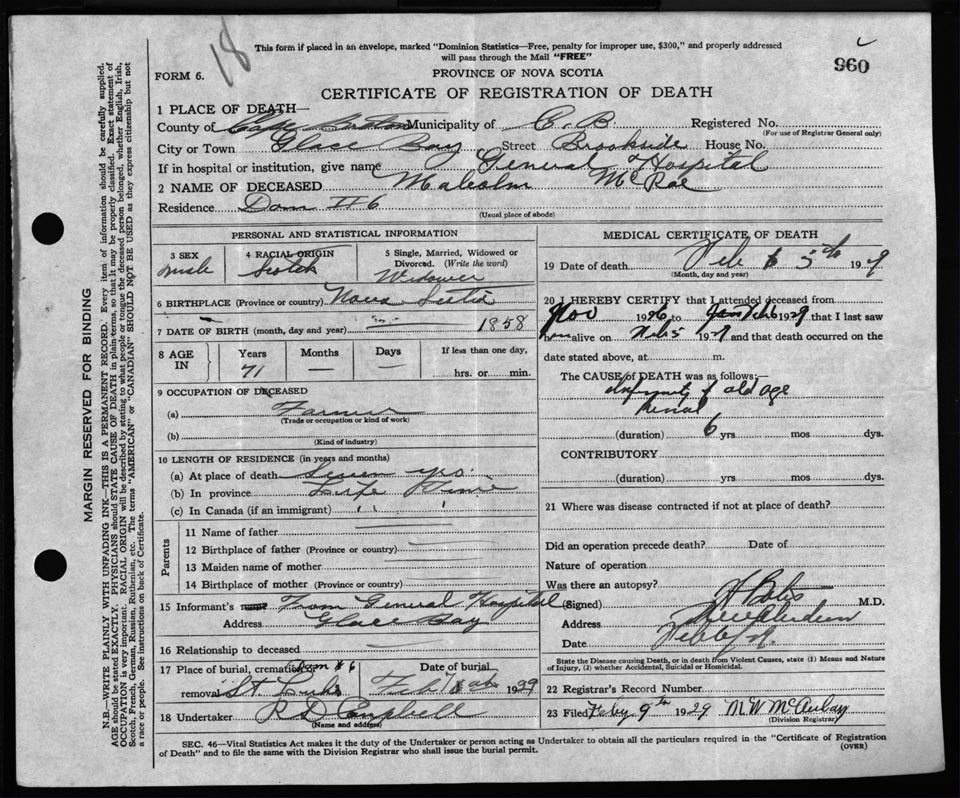 18
This form if placed in an envelope, marked "Dominion Statistics—Free, penalty for improper use, $300," and properly addressed
will pass through the Mail "FREE"
960
FORM 6.
PROVINCE OF NOVA SCOTIA
CERTIFICATE OF REGISTRATION OF DEATH
1 PLACE OF DEATH—
County of Cape Breton Municipality of C. B Registered No.
(For use of Registrar General only)
City or Town Glace Bay Street Brookside House No.
If in hospital or institution, give name General Hospital
2 NAME OF DECEASED Malcolm McRae
Residence Dom #6
(Usual place of abode)
PERSONAL AND STATISTICAL INFORMATION
3 SEX
male
4 RACIAL ORIGIN
Scotch
5 Single, Married, Widowed or
Divorced. (Write the word)
Widower
6 BIRTHPLACE (Province or country) Nova Scotia
7 DATE OF BIRTH (month, day and year) — 1858
8 AGE
IN
Years
71
Months
—
Days
—
If less than one day,
hrs. or min.
9 OCCUPATION OF DECEASED
(a) Farmer
(Trade or occupation or kind of work)
(b)
(Kind of industry)
10 LENGTH OF RESIDENCE (in years and months)
(a) At place of death Seven yrs.
(b) In province Life Time
(c) In Canada (if an immigrant) " "
Parents
11 Name of father
12 Birthplace of father (Province or country)
13 Maiden name of mother
14 Birthplace of mother (Province or country)
15 Informant's From General Hospital
Address Glace Bay
16 Relationship to deceased
17 Place of burial, cremation or Dom #6 Date of burial
removal St Lukes Feb 1929
18 Undertaker R D Campbell
(Name and address)
MEDICAL CERTIFICATE OF DEATH
19 Date of death Feb 5th 1929
(Month, day and year)
20 I HEREBY CERTIFY that I attended deceased from
Nov 1926 to Feb 1929 that I last saw
him alive on 1929 and that death occurred on the
date stated above, at m.
The CAUSE of DEATH was as follows:—
of old age
Renal
(duration) 6 yrs. mos. dys.
CONTRIBUTORY
(duration) yrs. mos. dys.
21 Where was disease contracted if not at place of death?
Did an operation precede death? Date of
Nature of operation
Was there an autopsy?
(Signed) M.D.
Address New Aberdeen
Date
State the Disease causing Death, or in death from Violent Causes, state (1) Means and Nature
of Injury, (2) whether Accidental, Suicidal or Homicidal.
22 Registrar's Record Number
23 Filed Feby 9th 1929 M W McAulay
(Division Registrar)
SEC. 46—Vital Statistics Act makes it the duty of the Undertaker or person acting as Undertaker to obtain all the particulars required in the "Certificate of Registration
of Death" and to file the same with the Division Registrar who shall issue the burial permit.
(OVER)
MARGIN RESERVED FOR BINDING
N.B.—WRITE PLAINLY WITH UNFADING INK—THIS IS A PERMANENT RECORD. Every item of information should be carefully supplied.
AGE should be stated EXACTLY. PHYSICIANS should STATE CAUSE OF DEATH in plain terms, so that it may be properly classified. Exact statement of
OCCUPATION is very important. RACIAL ORIGIN will be described by stating to what people or tongue the deceased person belonged, whether English, Irish,
Scotch, French, German, Russian, Ruthenian, etc. The terms "AMERICAN" or "CANADIAN" SHOULD NOT BE USED as they express citizenship but not
a race or people. See instructions on back of Certificate.